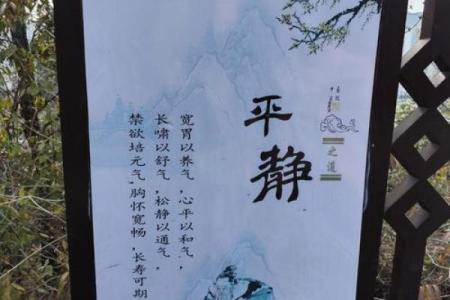 平静
之道
宽胃以养气,心平以和气,
长啸以舒气,松静以通气,
禁欲培元气,胸怀宽畅,长寿可期